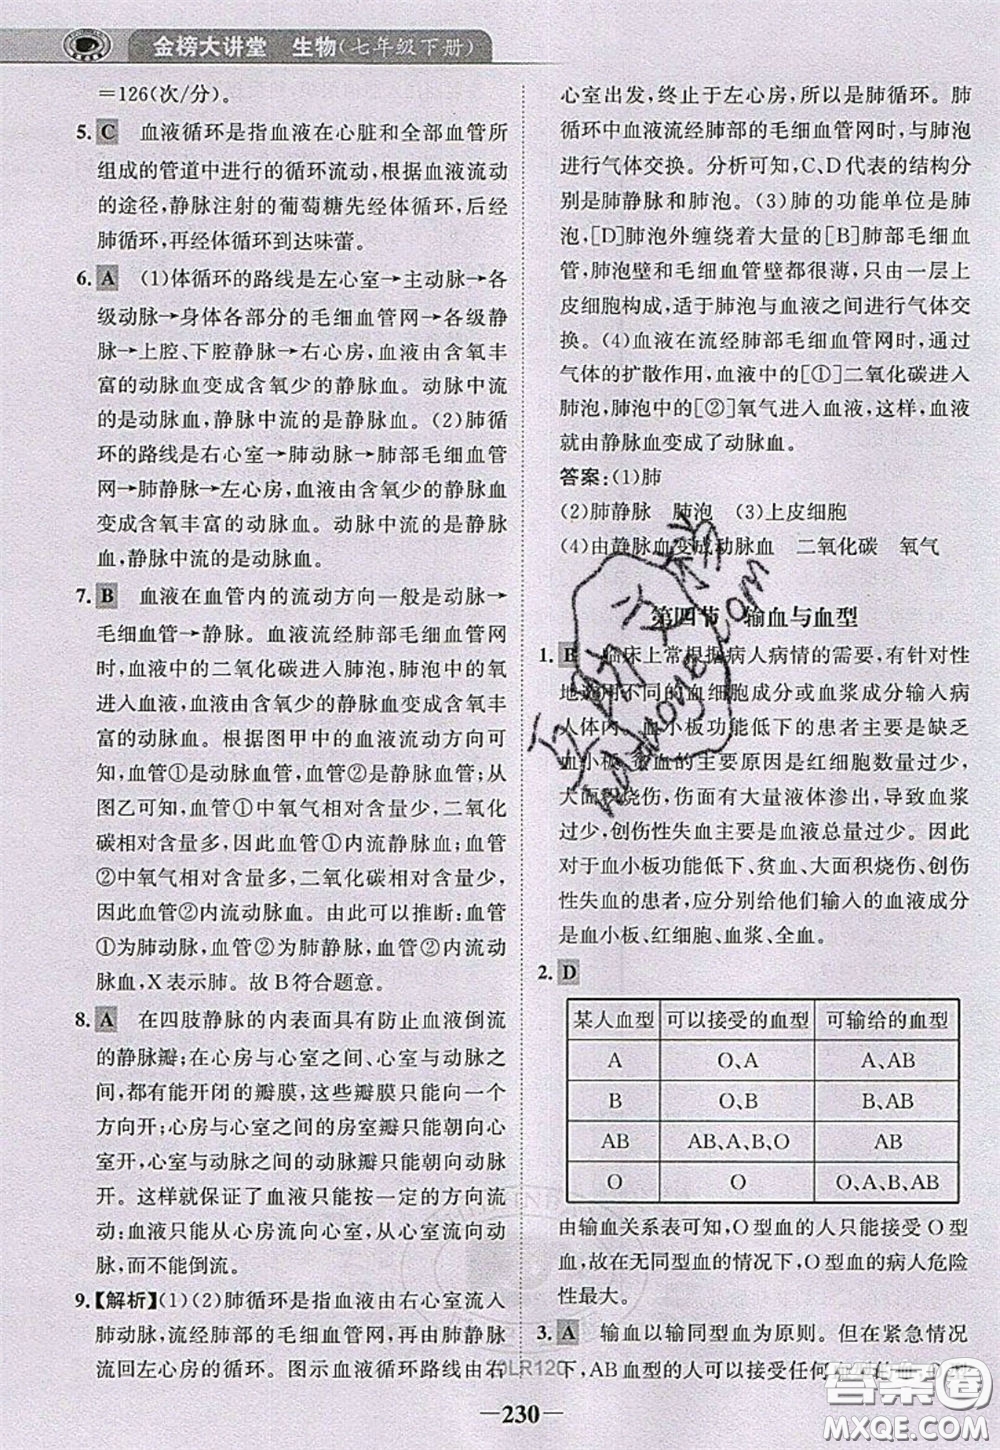 金榜大讲堂 生物(七年级下册)
＝126(次/分)。
5. C 血液循环是指血液在心脏和全部血管所
组成的管道中进行的循环流动,根据血液流动
的途径,静脉注射的葡萄糖先经体循环,后经
肺循环,再经体循环到达味蕾。
6. A (1)体循环的路线是左心室→主动脉→各
级动脉→身体各部分的毛细血管网→各级静
脉→上腔、下腔静脉→右心房,血液由含氧丰
富的动脉血变成含氧少的静脉血。动脉中流
的动脉血,静脉中流的静脉血。(2)肺循
环的路线是右心室→肺动脉→肺部毛细血管
网→肺静脉→左心房,血液由含氧少的静脉血
变成含氧丰富的动脉血。动脉中流的是静脉
血,静脉中流的是动脉血。
7. B 血液在血管内的流动方向一般是动脉→
毛细血管→静脉。血液流经肺部毛细血管网
时,血液中的二氧化碳进入肺泡,肺泡中的氧
进入血液,血液由含氧少的静脉血变成含氧丰
富的动脉血。根据图甲中的血液流动方向可
知,血管①是动脉,血管②是静脉血管;
从图乙可知,血管①中氧气相对含量少,二氧化
碳相对含量多,因此血管①内流静脉血;血管
②中氧气相对含量多,二氧化碳相对含量少,
因此血管②内流动脉血。由此可以推断:血管
①为肺动脉,血管②为肺静脉,血管②内流动
脉血,X表示肺。故B符合题意。
8. A 在四肢静脉的内表面具有防止血液倒流
的静脉瓣;在心房与心室之间、心室与动脉之间,
都有能开闭的瓣膜,这些瓣膜只能向一个
方向开;心房与心室之间的房室瓣只能朝向心
室开,心室与动脉之间的动脉瓣只能朝向动脉
开。这样就保证了血液只能按一定的方向流
动:血液只能从心房流向心室,从心室流向动
脉,而不能倒流。
9.【解析】(1)(2)肺循环是指血液由右心室流入
肺动脉,流经肺部的毛细血管网,再由肺静脉
流回左心房的循环。图示血液循环路线由右
心室出发,终止于左心房,所以是肺循环。肺
循环中血液流经肺部的毛细血管网时,与肺泡
进行气体交换。分析可知,C、D代表的结构分
别是肺静脉和肺泡。(3)肺的功能单位是肺
泡,[D]肺泡外缠绕着大量的[B]肺部毛细血
管,肺泡壁和毛细血管壁都很薄,只由一层上
皮细胞构成,适于肺泡与血液之间进行气体交
换。(4)血液在流经肺部毛细血管网时,通过
气体的扩散作用,血液中的[①]二氧化碳进入
肺泡,肺泡中的[②]氧气进入血液,这样,血液
就由静脉血变成了动脉血。
答案:(1)肺
(2)肺静脉 肺泡 (3)上皮细胞
(4)由静脉血变成动脉血 二氧化碳 氧气
第四节 输血与血型
1. B 临床上常根据病人病情的需要,有针对性
地选用不同的血细胞成分或血浆成分输入病
人体内。血小板功能低下的患者主要是缺乏
血小板,贫血的主要原因是红细胞数量过少,
大面积烧伤,伤面有大量液体渗出,导致血浆
过少,创伤性失血主要是血液总量过少。因此
对于血小板功能低下、贫血、大面积烧伤、创伤
性失血的患者,应分别给他们输入的血液成分
是血小板、红细胞、血浆、全血。
2. D
某人血型 可以接受的血型 可输给的血型
A O、A A、AB
B O、B B、AB
AB AB、A、B、O AB
O O O、A、B、AB
由输血关系表可知,O型血的人只能接受O型
血,故在无同型血的情况下,O型血的病人危险
性最大。
3. A 输血以输同型血为原则。但在紧急情况
下,AB血型的人可以接受任何
20LR120
230
答案圈
MXQE.COM